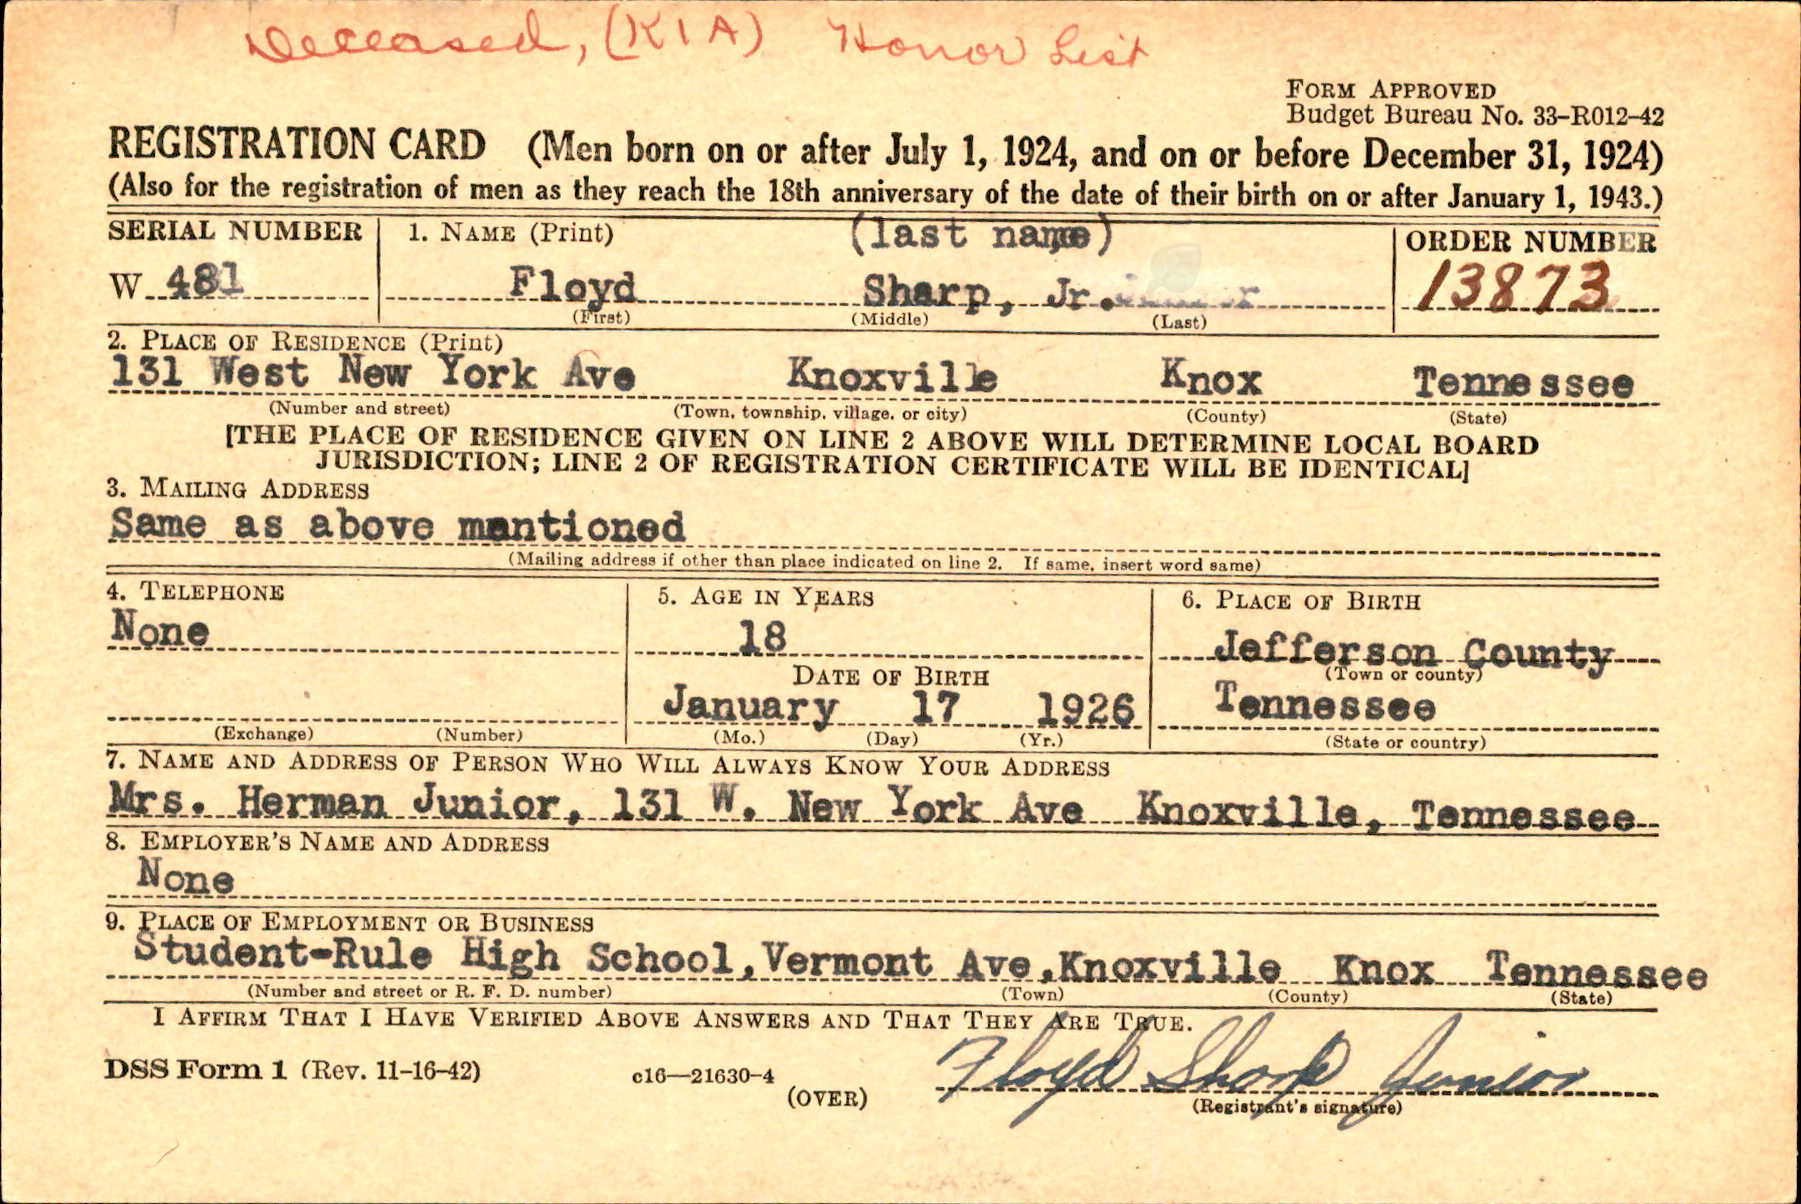 Deceased, (KIA) Honor List
FORM APPROVED
Budget Bureau No. 33-R012-42
REGISTRATION CARD (Men born on or after July 1, 1924, and on or before December 31, 1924)
(Also for the registration of men as they reach the 18th anniversary of the date of their birth on or after January 1, 1943.)
SERIAL NUMBER 1. NAME (Print) (last name) ORDER NUMBER
W 481 Floyd Sharp, Jr. 13873
(First) (Middle) (Last)
2. PLACE OF RESIDENCE (Print)
131 West New York Ave Knoxville Knox Tennessee
(Number and street) (Town, township, village, or city) (County) (State)
[THE PLACE OF RESIDENCE GIVEN ON LINE 2 ABOVE WILL DETERMINE LOCAL BOARD
JURISDICTION; LINE 2 OF REGISTRATION CERTIFICATE WILL BE IDENTICAL]
3. MAILING ADDRESS
Same as above mentioned
(Mailing address if other than place indicated on line 2. If same, insert word same)
4. TELEPHONE 5. AGE IN YEARS 6. PLACE OF BIRTH
None 18 Jefferson County
DATE OF BIRTH (Town or county)
January 17 1926 Tennessee
(Exchange) (Number) (Mo.) (Day) (Yr.) (State or country)
7. NAME AND ADDRESS OF PERSON WHO WILL ALWAYS KNOW YOUR ADDRESS
Mrs. Herman Junior, 131 W. New York Ave Knoxville, Tennessee
8. EMPLOYER'S NAME AND ADDRESS
None
9. PLACE OF EMPLOYMENT OR BUSINESS
Student-Rule High School, Vermont Ave, Knoxville Knox Tennessee
(Number and street or R. F. D. number) (Town) (County) (State)
I AFFIRM THAT I HAVE VERIFIED ABOVE ANSWERS AND THAT THEY ARE TRUE.
DSS Form 1 (Rev. 11-16-42) c16—21630-4 Floyd Sharp Junior
(OVER) (Registrant's signature)